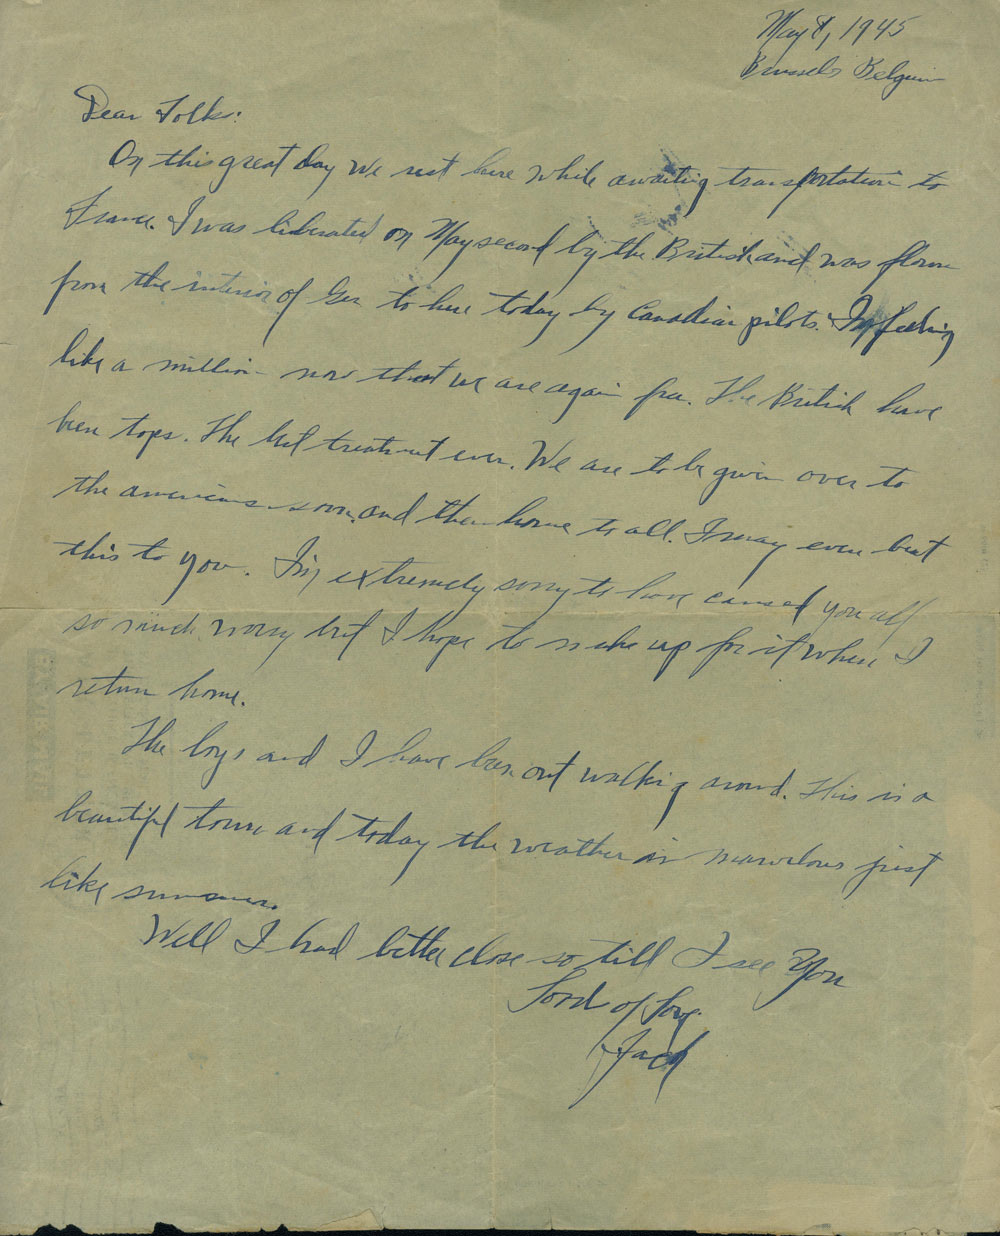 May 8, 1945
Brussels Belgium
Dear Folks:
On this great day we rest here while awaiting transportation to
France. I was liberated on May second by the British and was flown
from the interior of Ger to here today by Canadian pilots. Im feeling
like a million now that we are again free. The British have
been tops. The best treatment ever. We are to be given over to
the americans soon, and then home to all. I may even beat
this to you. I'm extremely sorry to have caused you all
so much worry but I hope to make up for it when I
return home.
The boys and I have been out walking around. This is a
beautiful town and today the weather is marvelous just
like summer.
Well I had better close so till I see You
of Love
Jack